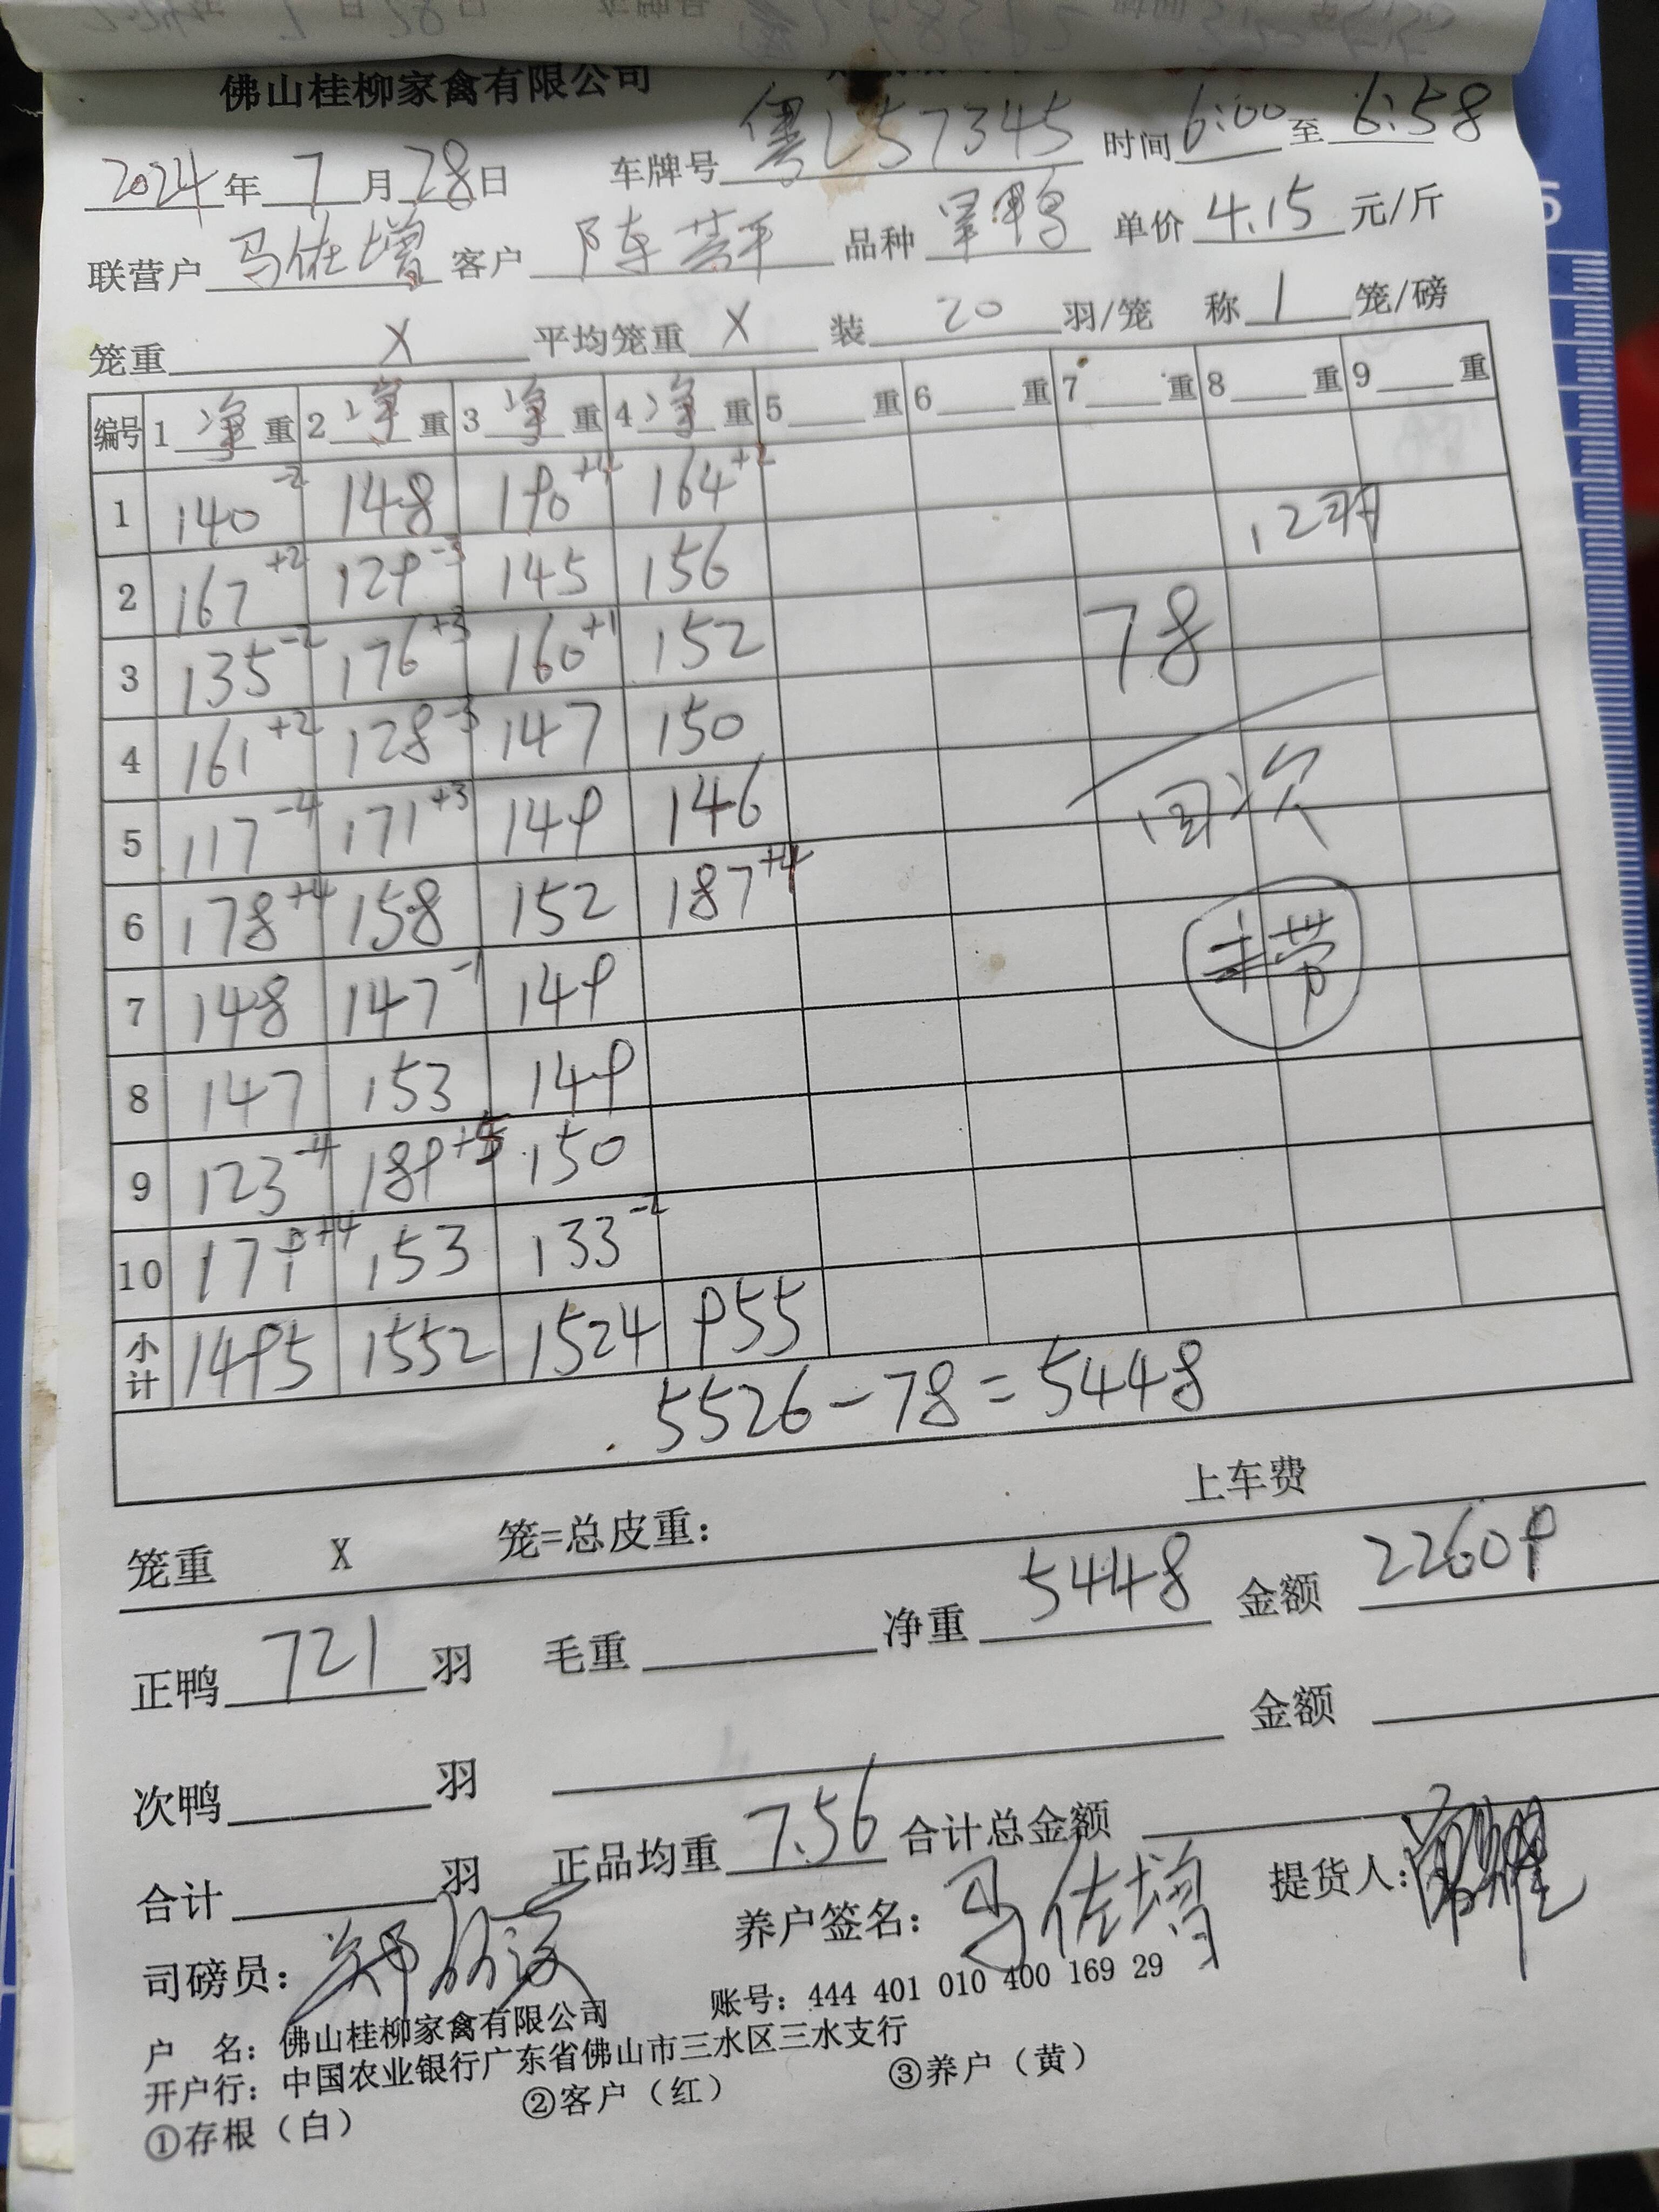 佛山桂柳家禽有限公司
2024年 7月28日 车牌号 粤L57345 时间 6:00 至 6:58
联营户 马佐增 客户 陈 平 品种 鸭 单价 4.15 元/斤
笼重 X 平均笼重 X 装 20 羽/笼 称 1 笼/磅
编号 1 净 重 2 净 重 3 净 重 4 净 重 5 重 6 重 7 重 8 重 9 重
1 140-2 148 190+4 164+2
12羽
2 167+2 129-3 145 156
3 135-2 176+3 160+1 152
78
4 161+2 128-3 147 150
5 117-4 171+3 149 146
回次
6 178+4 158 152 187+4
未带
7 148 147-1 149
8 147 153 149
9 123-4 189+5 150
10 179+4 153 133-2
小计 1495 1552 1524 955
5526-78=5448
上车费
笼重 X 笼=总皮重:
正鸭 721 羽 毛重 净重 5448 金额 22609
次鸭 羽 金额
合计 羽 正品均重 7.56 合计总金额
司磅员: 郑 养户签名: 马佐增 提货人:
户 名: 佛山桂柳家禽有限公司 账号: 444 401 010 400 169 29
开户行: 中国农业银行广东省佛山市三水区三水支行
①存根(白) ②客户(红) ③养户(黄)